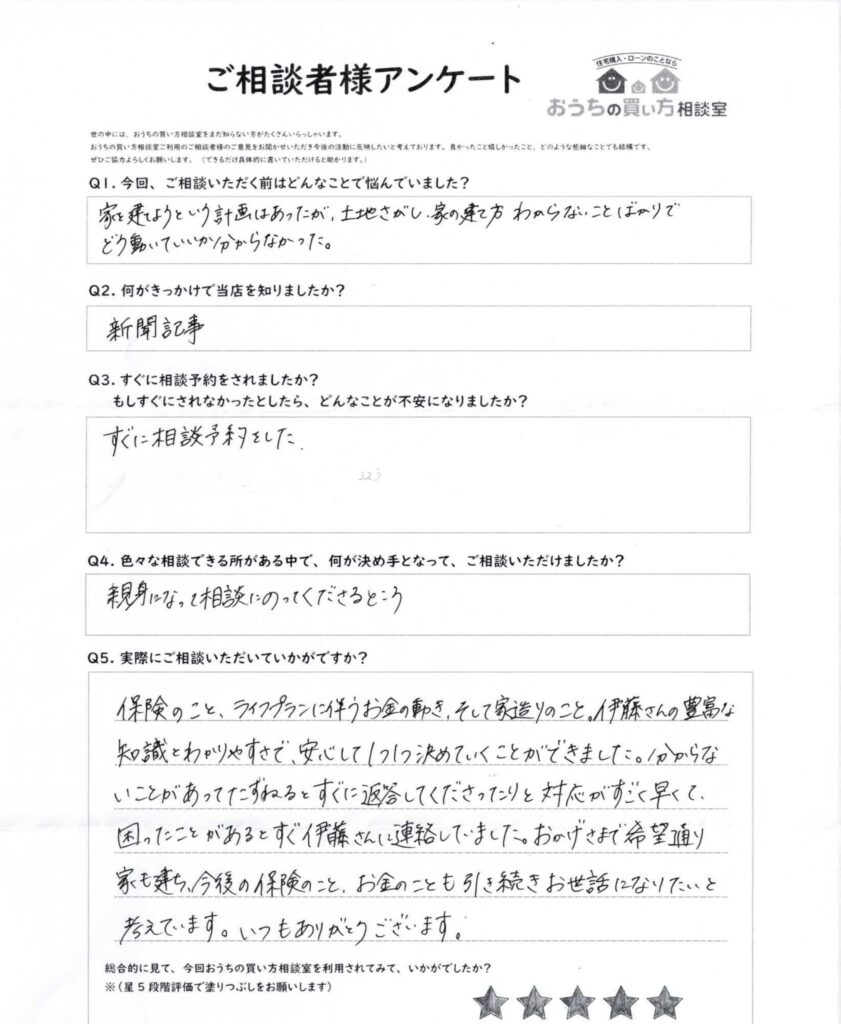 ご相談者様アンケート
住宅購入・ローンのことなら
おうちの買い方相談室
世の中には、おうちの買い方相談室をまだ知らない方がたくさんいらっしゃいます。
おうちの買い方相談室ご利用のご相談者様のご意見をお聞かせいただき今後の活動に反映したいと考えております。良かったこと嬉しかったこと、どのような些細なことでも結構です。
ぜひご協力よろしくお願いします。（できるだけ具体的に書いていただけると助かります。）
Q1. 今回、ご相談いただく前はどんなことで悩んでいました？
家を建てようという計画はあったが、土地さがし、家の建て方 わからないことばかりで
どう動いていいか分からなかった。
Q2. 何がきっかけで当店を知りましたか？
新聞記事
Q3. すぐに相談予約をされましたか？
もしすぐにされなかったとしたら、どんなことが不安になりましたか？
すぐに相談予約をした.
Q4. 色々な相談できる所がある中で、何が決め手となって、ご相談いただけましたか？
親身になって相談にのってくださるところ
Q5. 実際にご相談いただいていかがですか？
保険のこと、ライフプランに伴うお金の動き、そして家造りのこと。伊藤さんの豊富な
知識とわかりやすさで、安心して1つ1つ決めていくことができました。分からな
いことがあってたずねるとすぐに返答してくださったりと対応がすごく早くて、
困ったことがあるとすぐ伊藤さんに連絡していました。おかげさまで希望通り
家も建ち、今後の保険のこと、お金のことも引き続きお世話になりたいと
考えています。いつもありがとうございます。
総合的に見て、今回おうちの買い方相談室を利用されてみて、いかがでしたか？
※（星5段階評価で塗りつぶしをお願いします）